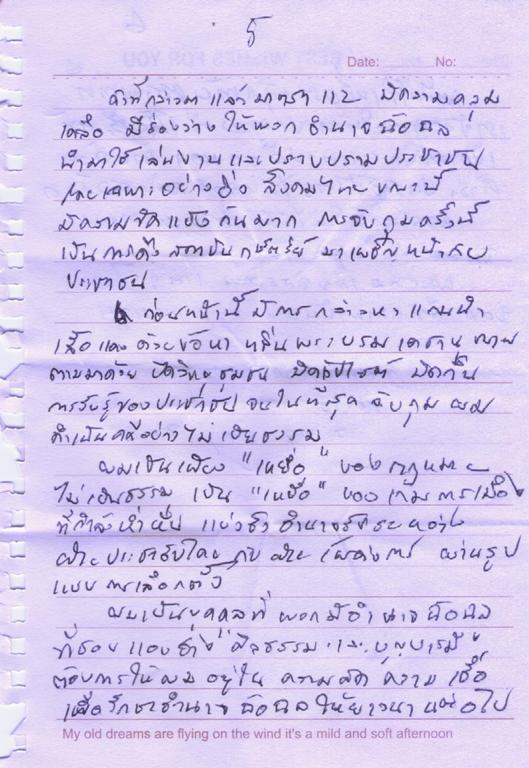 5
Date: No:
คำที่กล่าวมา และ มาตรา 112 มีความคลุม
เคลือ มีช่องว่าง ให้พวก อำนาจฉ้อฉล
นำมาใช้ เล่นงาน และปราบปรามประชาชน
โดยเฉพาะอย่างยิ่ง สังคมไทย ขณะนี้
มีความขัดแย้งกันมาก การจับกุมครั้งนี้
เป็นการดึงสถาบันกษัตริย์ มาเผชิญหน้ากับ
ประชาชน
ก่อนหน้านี้ มีการกล่าวหา แกนนำ
เสื้อแดง ด้วยข้อหา หมิ่นพระบรมเดชานุภาพ
ตามมาด้วย ปิดวิทยุชุมชน ปิดเว็ปไซท์ ปิดกั้น
การรับรู้ของประชาชน จนในที่สุด จับกุม ผม
ดำเนินคดีอย่างไม่เป็นธรรม
ผมเป็นเพียง "เหยื่อ" ของกฎหมาย
ไม่เป็นธรรม เป็น "เหยื่อ" ของเกมการเมือง
ที่กำลังห้ำหั่น แย่งชิงอำนาจรัฐระหว่าง
ฝ่ายประชาธิปไตย กับ ฝ่าย เผด็จการ ผ่านรูป
แบบการเลือกตั้ง
ผมเป็นบุคคลที่ พวกมีอำนาจฉ้อฉล
ที่ชอบแอบอ้าง "ศีลธรรม และ บุญบารมี"
ต้องการให้ผม อยู่ใน ความ ความเชื่อ
เพื่อรักษาอำนาจ ฉ้อฉล ให้ยาวนานต่อไป
My old dreams are flying on the wind it's a mild and soft afternoon